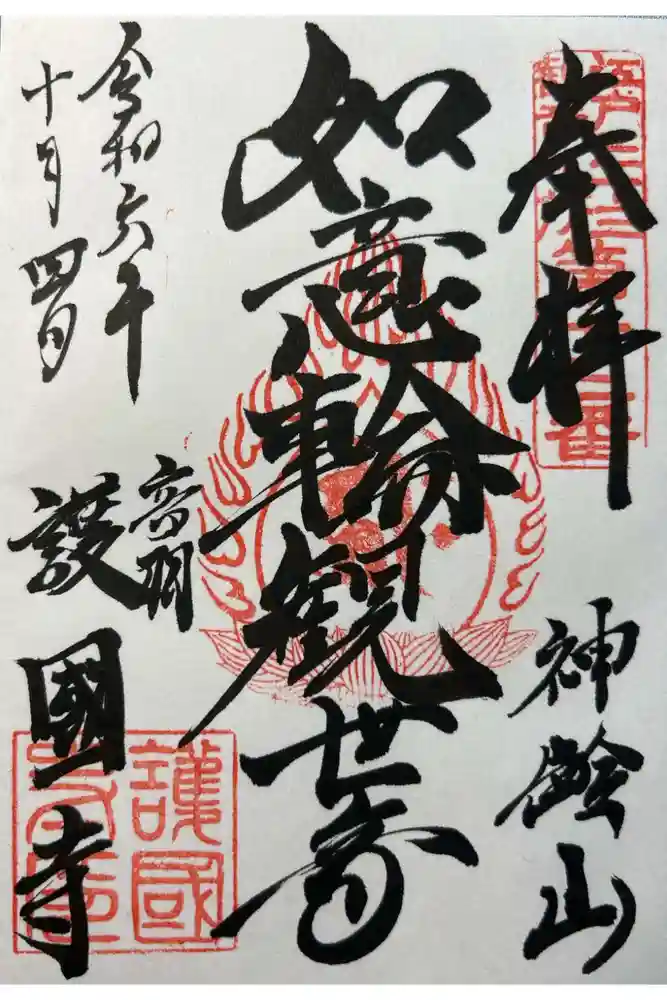 奉拝
神齢山
如意輪観世音
令和六年
十月四日
音羽
護國寺
護國